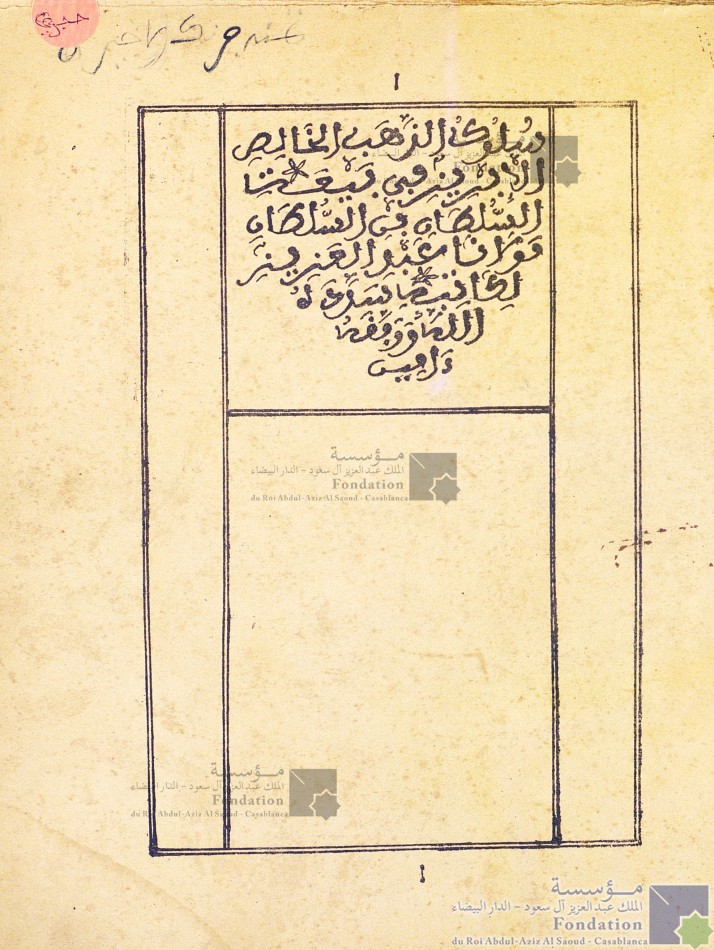 حجرية
١
سُلُوك الذهَب الخَالِص
الإبريز في بيعَة
السُّلطَان بن السُّلطَان
مولانا عبد العزيز
لكاتبه سدده
الله ووفقه
ءامين
مؤسسة
الملك عبد العزيز آل سعود – الدار البيضاء
Fondation
du Roi Abdul-Aziz Al Saoud - Casablanca
مؤسسة
الملك عبد العزيز آل سعود – الدار البيضاء
Fondation
du Roi Abdul-Aziz Al Saoud - Casablanca
١
مؤسسة
الملك عبد العزيز آل سعود – الدار البيضاء
Fondation
du Roi Abdul-Aziz Al Saoud - Casablanca